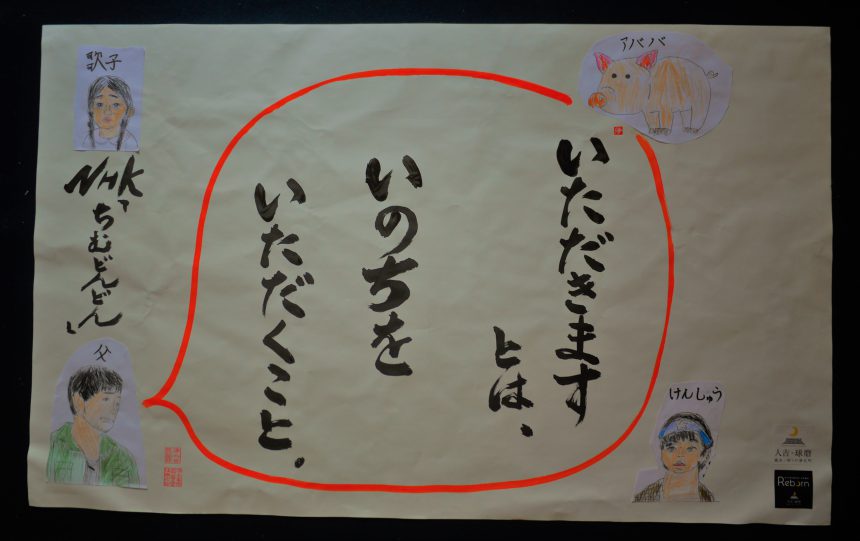 アババ
いただきます
とは、
いのちを
いただくこと。
歌子
NHK「
ちむどんどん」
父
けんしゅう
人吉・球磨
Reborn